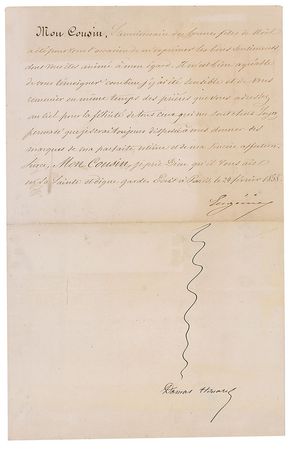 Mon Cousin, L'anniversaire des bonnes fêtes de Noël
a été pour vous l'occasion de m'exprimer les bons sentiments
dont vous êtes animé à mon égard. Il m'est bien agréable
de vous témoigner combien j'y ai été sensible et de vous
remercier en même temps des prières que vous adressez
au ciel pour la félicité de tous ceux qui me sont chers. Soyez
persuadé que je serai toujours disposée à vous donner des
marques de ma parfaite estime et de ma sincère affection.
Sur ce, Mon Cousin, je prie Dieu qu'il vous ait
en Sa Sainte et digne garde. Écrit à Paris le 24 février 1858.
Eugénie
Damas Hinard